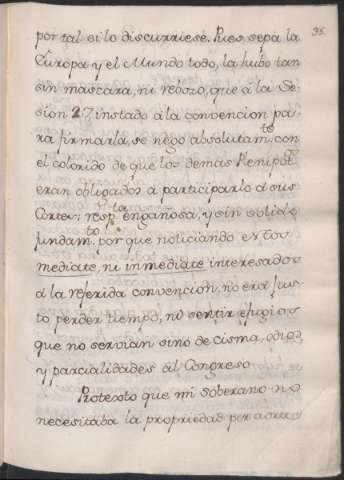 35.
por tal si lo discurriese. Pues sepa la
Europa y el Mundo todo, la hubo tan
sin mascara, ni rebozo, que a la Se-
sion 27 instado a la convencion pa-
ra firmarla, se nego absolutamte con
el colorido de que los demas Plenipots
eran obligados a participarlo a sus
Cortes: respta engañosa, y sin solido
fundamto porque noticiando
mediate, ni inmediate interesados
a la referida convencion, no era jus-
to perder tiempo, ni sentir efugios
que no servian sino de cisma, odios,
y parcialidades al Congreso
Protexto que mi soberano no
necesitaba la propiedad per